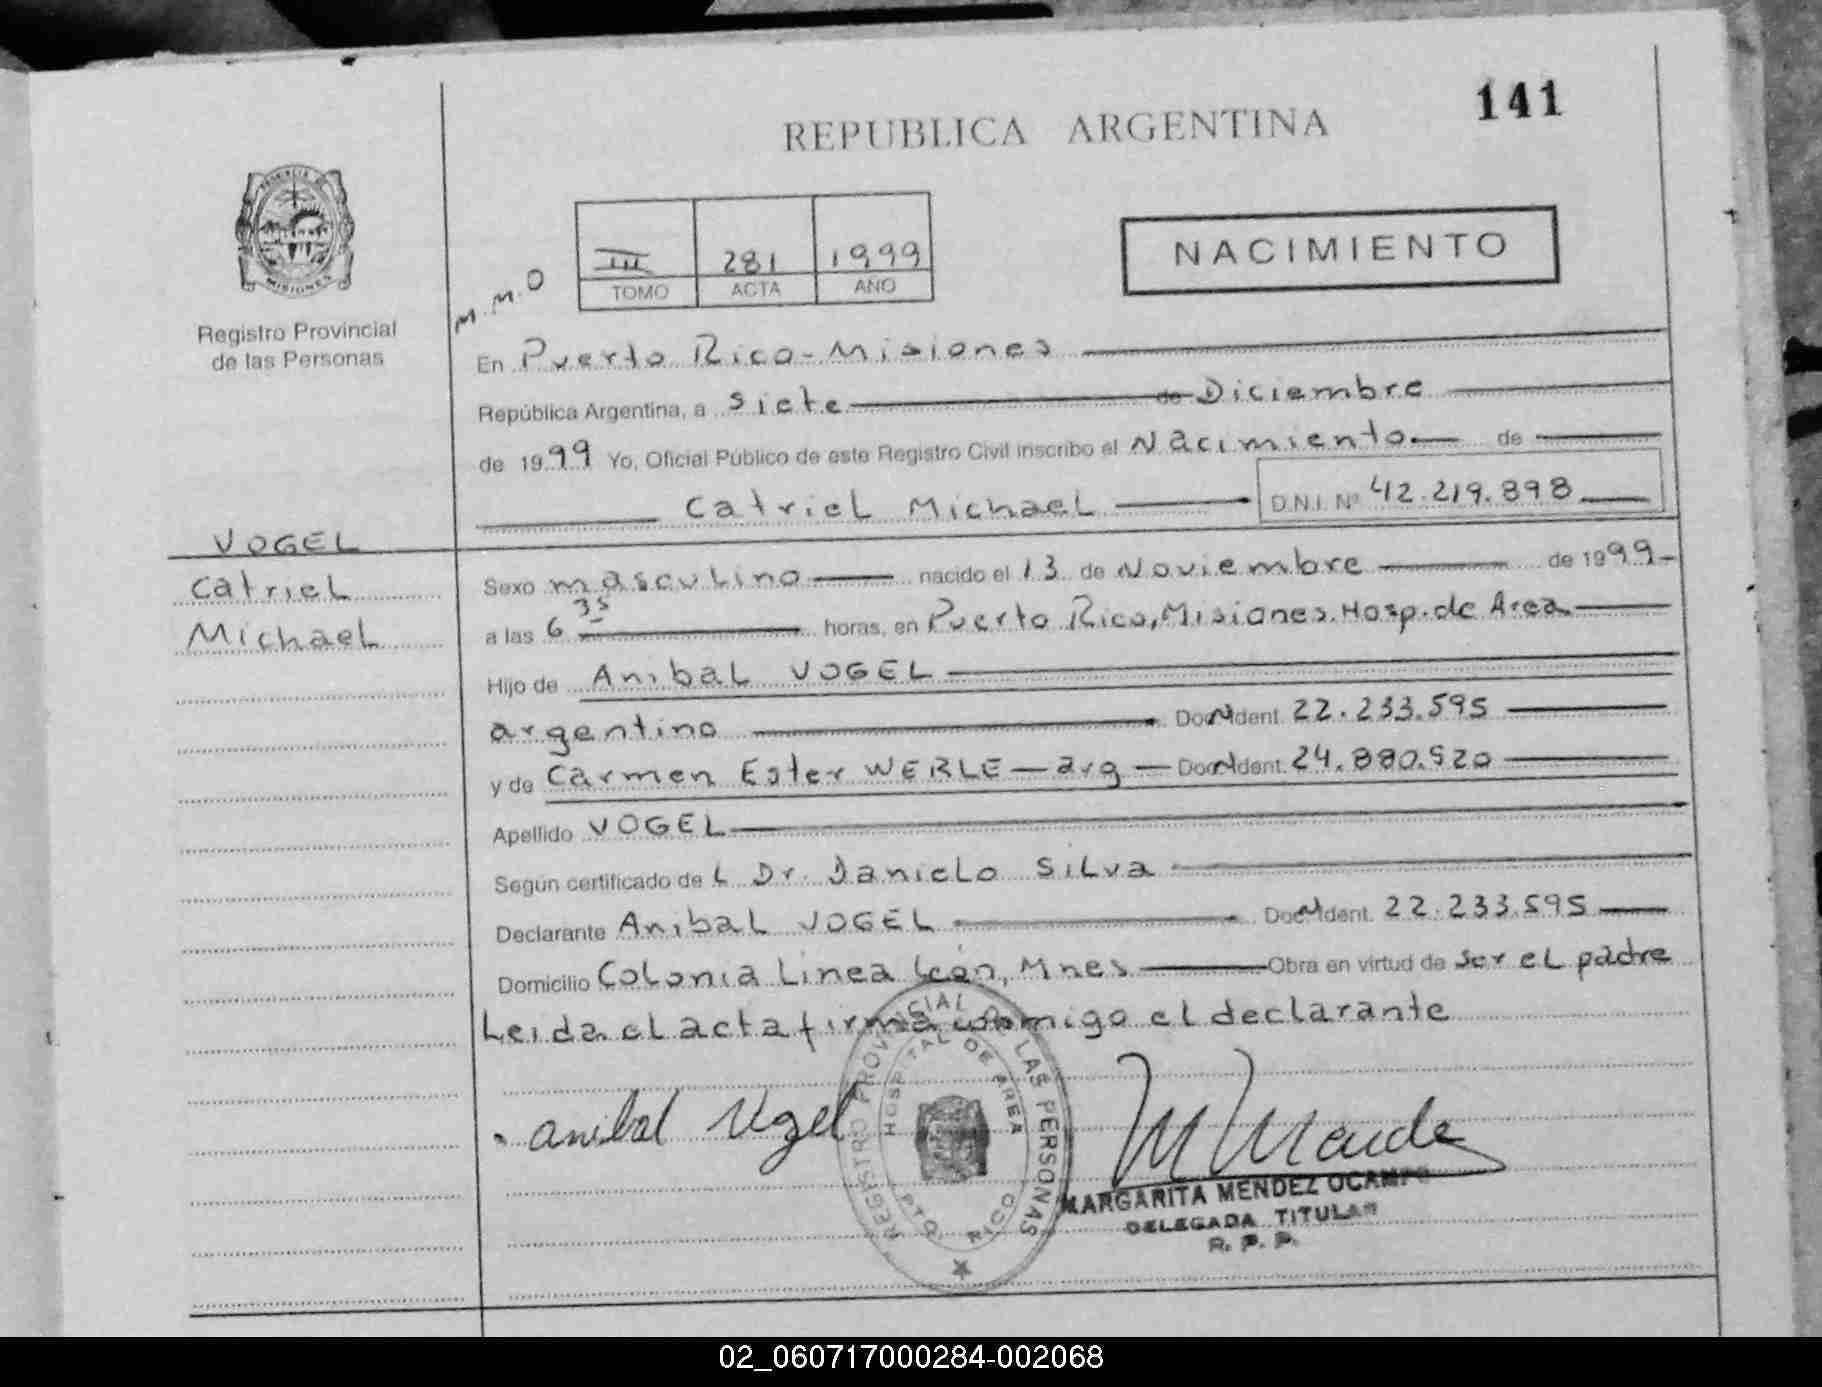 141
REPUBLICA ARGENTINA
PROVINCIA DE
MISIONES
Registro Provincial
de las Personas
III 281 1999
TOMO ACTA AÑO
NACIMIENTO
M.M.O
En Puerto Rico-Misiones
República Argentina, a siete de Diciembre
de 1999 Yo, Oficial Público de este Registro Civil inscribo el Nacimiento de
Catriel Michael D.N.I. Nº 42.219.898
VOGEL
Catriel
Michael
Sexo masculino nacido el 13 de Noviembre de 1999-
a las 6 35 horas, en Puerto Rico, Misiones. Hosp. de Area
Hijo de Anibal VOGEL
argentino Doc N Ident. 22.233.595
y de Carmen Ester WERLE - arg - Doc N Ident. 24.880.520
Apellido VOGEL
Según certificado de L Dr. Danielo Silva
Declarante Anibal VOGEL Doc N Ident. 22.233.595
Domicilio Colonia Linea León, Mnes Obra en virtud de ser el padre
Leida el acta firma conmigo el declarante
REGISTRO PROVINCIAL DE LAS PERSONAS
HOSPITAL DE AREA
PTO. RICO
anibal Vogel
M Mende
MARGARITA MENDEZ OCAMPO
DELEGADA TITULAR
R. P. P.
02_060717000284-002068